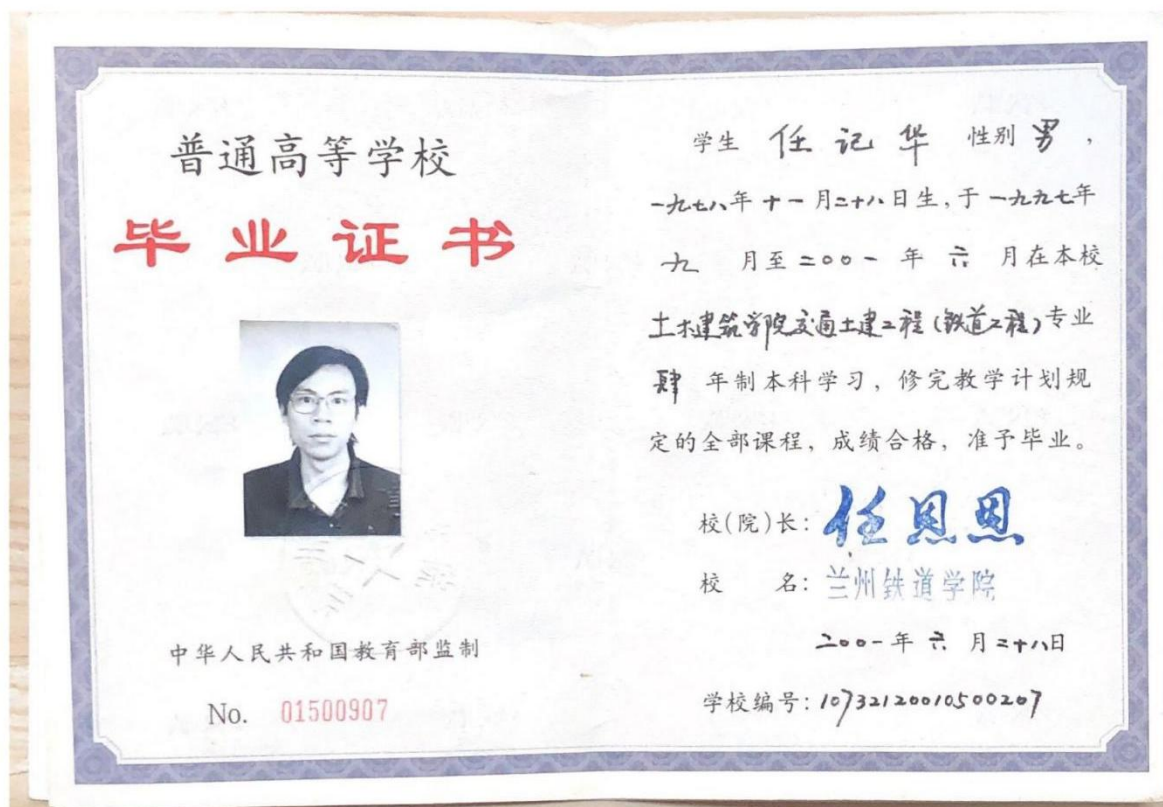 普通高等学校
毕业证书
中华人民共和国教育部监制
No. 01500907
学生 任记华 性别 男，
一九七八年十一月二十八日生，于一九九七年
九 月至二〇〇一 年 六 月在本校
土木建筑学院交通土建工程（铁道工程）专业
肆 年制本科学习，修完教学计划规
定的全部课程，成绩合格，准予毕业。
校（院）长：任恩恩
校 名：兰州铁道学院
二〇〇一年 六 月二十八日
学校编号：10732120010500207